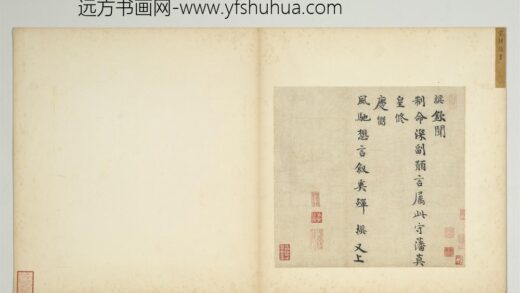 远方书画网-www.yfshuhua.com
撰欽聞
制命深副顒言屬此守藩莫
皇修
慶
風馳想言叙奚殫 撰又上